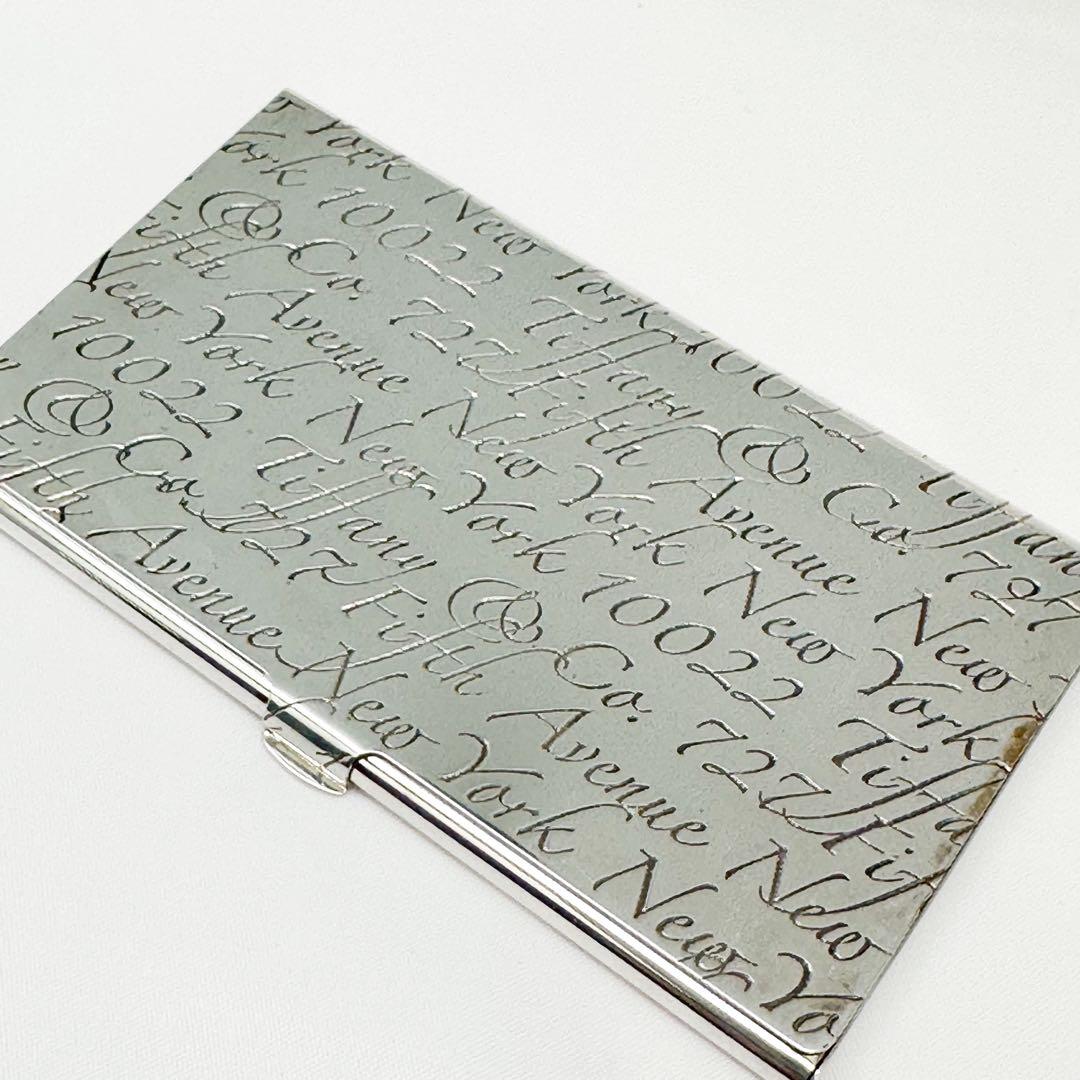 York New York 10022 Tiffany
York 10022 Tiffany & Co. 727
& Co. 727 Fifth Avenue New
Fifth Avenue New York New York
New York New York 10022 Tiffa
10022 Tiffany & Co. 727 Fif
& Co. 727 Fifth Avenue New
Fifth Avenue New York New Yo